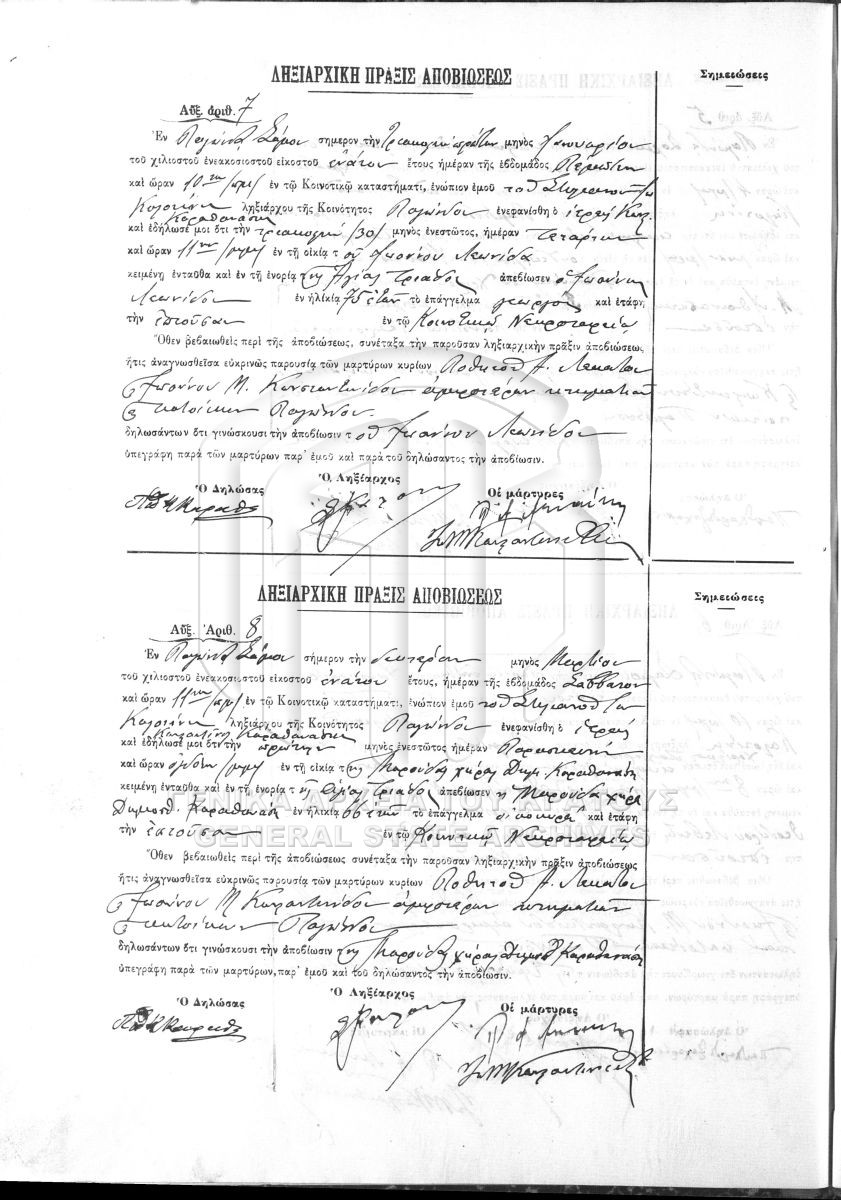 ΛΗΞΙΑΡΧΙΚΗ ΠΡΑΞΙΣ ΑΠΟΒΙΩΣΕΩΣ
Σημειώσεις
Αὔξ. ἀριθ. 7
Ἐν Παγώνδα Σάμου σήμερον τὴν τριακοστὴν πρώτην μηνὸς Ἰανουαρίου
τοῦ χιλιοστοῦ ἐνεακοσιοστοῦ εἰκοστοῦ ἐνάτου ἔτους ἡμέραν τῆς ἑβδομάδος Πέμπτην
καὶ ὥραν 10ην πμ ἐν τῷ Κοινοτικῷ καταστήματι, ἐνώπιον ἐμοῦ τοῦ Στυλιανοῦ
ληξιάρχου τῆς Κοινότητος Παγώνδου ἐνεφανίσθη ὁ ἱερεὺς Κων.
Καραθανάσης
καὶ ἐδήλωσέ μοι ὅτι τὴν τριακοστὴν /30/ μηνὸς ἐνεστῶτος, ἡμέραν Τετάρτην
καὶ ὥραν 11ην ἐν τῇ οἰκίᾳ τοῦ Ἰωάννου Λεωνίδα
κειμένῃ ἐνταῦθα καὶ ἐν τῇ ἐνορίᾳ τῆς Ἁγίας Τριάδος ἀπεβίωσεν ὁ Ἰωάννης
Λεωνίδου ἐν ἡλικίᾳ 75 ἐτῶν τὸ ἐπάγγελμα γεωργὸς καὶ ἐτάφη
τὴν ἐπιοῦσαν ἐν τῷ Κοινοτικῷ Νεκροταφείῳ
Ὅθεν βεβαιωθεὶς περὶ τῆς ἀποβιώσεως, συνέταξα τὴν παροῦσαν ληξιαρχικὴν πρᾶξιν ἀποβιώσεως,
ἥτις ἀναγνωσθεῖσα εὐκρινῶς παρουσίᾳ τῶν μαρτύρων κυρίων Ποθητοῦ Α.
Ἰωάννου Μ. Κωνσταντινίδου ἀμφοτέρων κτηματιῶν
κατοίκων Παγώνδου.
δηλωσάντων ὅτι γινώσκουσι τὴν ἀποβίωσιν τοῦ Ἰωάννου Λεωνίδου
ὑπεγράφη παρὰ τῶν μαρτύρων παρ' ἐμοῦ καὶ παρὰ τοῦ δηλώσαντος τὴν ἀποβίωσιν.
Ὁ Δηλώσας
Ὁ Ληξίαρχος
Οἱ μάρτυρες
ΛΗΞΙΑΡΧΙΚΗ ΠΡΑΞΙΣ ΑΠΟΒΙΩΣΕΩΣ
Σημειώσεις
Αὔξ. Ἀριθ. 8
Ἐν Παγώνδα Σάμου σήμερον τὴν δευτέραν μηνὸς Μαρτίου
τοῦ χιλιοστοῦ ἐνεακοσιοστοῦ εἰκοστοῦ ἐνάτου ἔτους, ἡμέραν τῆς ἑβδομάδος Σάββατον
καὶ ὥραν 11ην πμ ἐν τῷ Κοινοτικῷ καταστήματι, ἐνώπιον ἐμοῦ τοῦ Στυλιανοῦ
ληξιάρχου τῆς Κοινότητος Παγώνδου ἐνεφανίσθη ὁ ἱερεὺς
Κωνσταντῖνος Καραθανάσης
καὶ ἐδήλωσέ μοι ὅτι τὴν πρώτην μηνὸς ἐνεστῶτος ἡμέραν Παρασκευὴν
καὶ ὥραν ὀγδόην ἐν τῇ οἰκίᾳ τῆς Μαρούδας χήρας Δημ. Καραθανάση
κειμένῃ ἐνταῦθα καὶ ἐν τῇ ἐνορίᾳ τῆς Ἁγίας Τριάδος ἀπεβίωσεν ἡ Μαρούδα χήρα
Δημοσθ. Καραθανάση ἐν ἡλικίᾳ 66 ἐτῶν τὸ ἐπάγγελμα οἰκοκυρὰ καὶ ἐτάφη
τὴν ἐπιοῦσαν ἐν τῷ Κοινοτικῷ Νεκροταφείῳ
Ὅθεν βεβαιωθεὶς περὶ τῆς ἀποβιώσεως συνέταξα τὴν παροῦσαν ληξιαρχικὴν πρᾶξιν ἀποβιώσεως
ἥτις ἀναγνωσθεῖσα εὐκρινῶς παρουσίᾳ τῶν μαρτύρων κυρίων Ποθητοῦ Α.
Ἰωάννου Μ Κωνσταντινίδου ἀμφοτέρων κτηματιῶν
κατοίκων Παγώνδου
δηλωσάντων ὅτι γινώσκουσι τὴν ἀποβίωσιν τῆς Μαρούδας χήρας Δημοσθ. Καραθανάση
ὑπεγράφη παρὰ τῶν μαρτύρων, παρ' ἐμοῦ καὶ τοῦ δηλώσαντος τὴν ἀποβίωσιν.
Ὁ Δηλώσας
Ὁ Ληξίαρχος
Οἱ μάρτυρες
ΓΕΝΙΚΑ ΑΡΧΕΙΑ ΤΟΥ ΚΡΑΤΟΥΣ
GENERAL STATE ARCHIVES